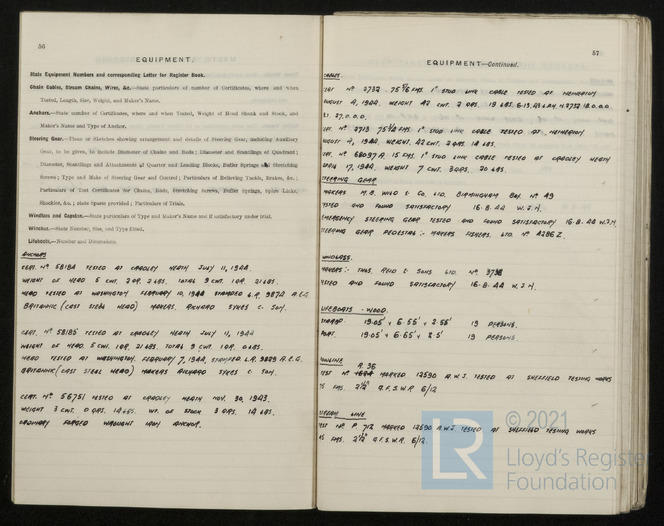 56
EQUIPMENT.
State Equipment Numbers and corresponding Letter for Register Book.
Chain Cables, Stream Chains, Wires, &c.—State particulars of number of Certificates, where and when
Tested, Length, Size, Weight, and Maker's Name.
Anchors.—State number of Certificates, where and when Tested, Weight of Head Shank and Stock, and
Maker's Name and Type of Anchor.
Steering Gear.—Plans or Sketches showing arrangement and details of Steering Gear, including Auxiliary
Gear, to be given, to include Diameter of Chains and Rods; Diameter and Scantlings of Quadrant;
Diameter, Scantlings and Attachments of Quarter and Leading Blocks, Buffer Springs and Stretching
Screws; Type and Make of Steering Gear and Control; Particulars of Relieving Tackle, Brakes, &c.;
Particulars of Test Certificates for Chains, Rods, Stretching Screws, Buffer Springs, Links,
Shackles, &c.; state Spares provided; Particulars of Trials.
Windlass and Capstan.—State particulars of Type and Maker's Name and if satisfactory under trial.
Winches.—State Number, Size, and Type fitted.
Lifeboats.—Number and Dimensions.
ANCHORS
CERT. Nº 58184 TESTED AT CRADLEY HEATH JULY 11, 1944.
WEIGHT OF HEAD 5 CWT. 2 QR. 2 LBS. TOTAL 9 CWT. 1 QR. 21 LBS.
HEAD TESTED AT WASHINGTON FEBRUARY 10, 1944 STAMPED L.R. 9872 A.E.G.
BRITANNIC (CAST STEEL HEAD) MAKERS. RICHARD SYKES & SON.
CERT. Nº 58185 TESTED AT CRADLEY HEATH JULY 11, 1944
WEIGHT OF HEAD. 5 CWT. 1 QR. 21 LBS. TOTAL 9 CWT. 1 QR. 0 LBS.
HEAD TESTED AT WASHINGTON. FEBRUARY 7, 1944, STAMPED L.R. 9829 A.E.G.
BRITANNIC (CAST STEEL HEAD) MAKERS RICHARD SYKES & SON.
CERT. Nº 56751 TESTED AT CRADLEY HEATH NOV. 30, 1943.
WEIGHT 3 CWT. 0 QRS. 14 LBS. WT. OF STOCK 3 QRS. 14 LBS.
ORDINARY FORGED WROUGHT IRON ANCHOR.
57
EQUIPMENT—Continued.
CABLES.
Nº 2732. FMS. 1" STUD LINK CABLE TESTED AT NETHERTON
AUGUST 4, 1944. WEIGHT 42 CWT. 2 QRS. 19 LBS.
Nº 2713 FMS. 1" STUD LINK CABLE TESTED AT NETHERTON
AUGUST 4, 1944. WEIGHT 42 CWT. 3 QRS. 14 LBS.
Nº 68097 A. 15 FMS. 1" STUD LINK CABLE TESTED AT CRADLEY HEATH
17, 1944. WEIGHT 7 CWT. 3 QRS. 20 LBS.
STEERING GEAR.
MAKERS M.B. WILD & CO. LTD. BIRMINGHAM Nº A9
TESTED AND FOUND SATISFACTORY 16.8.44 W.J.H.
EMERGENCY STEERING GEAR TESTED AND FOUND SATISFACTORY 16.8.44 W.J.H.
STEERING GEAR PEDESTAL:- MAKERS FISHERS. LTD. Nº A286Z.
WINDLASS.
MAKERS:- THOS. REID & SONS LTD. Nº 3738
TESTED AND FOUND SATISFACTORY 16.8.44 W.J.H.
LIFEBOATS - WOOD.
STARB'D. 19.05' x 6.55' x 2.55' 19 PERSONS.
PORT. 19.05' x 6.65' x 2.5' 19 PERSONS.
TOWLINE
R. 36
TEST Nº MARKED 12590 A.W.J. TESTED AT SHEFFIELD TESTING WORKS
75 FMS. 2½" G.F.S.W.R. 6/12
STREAM LINE
TEST Nº P. 712 MARKED 12590 A.W.J. TESTED AT SHEFFIELD TESTING WORKS
FMS. 2½" G.F.S.W.R. 6/12.
© 2021
LR
Lloyd's Register
Foundation